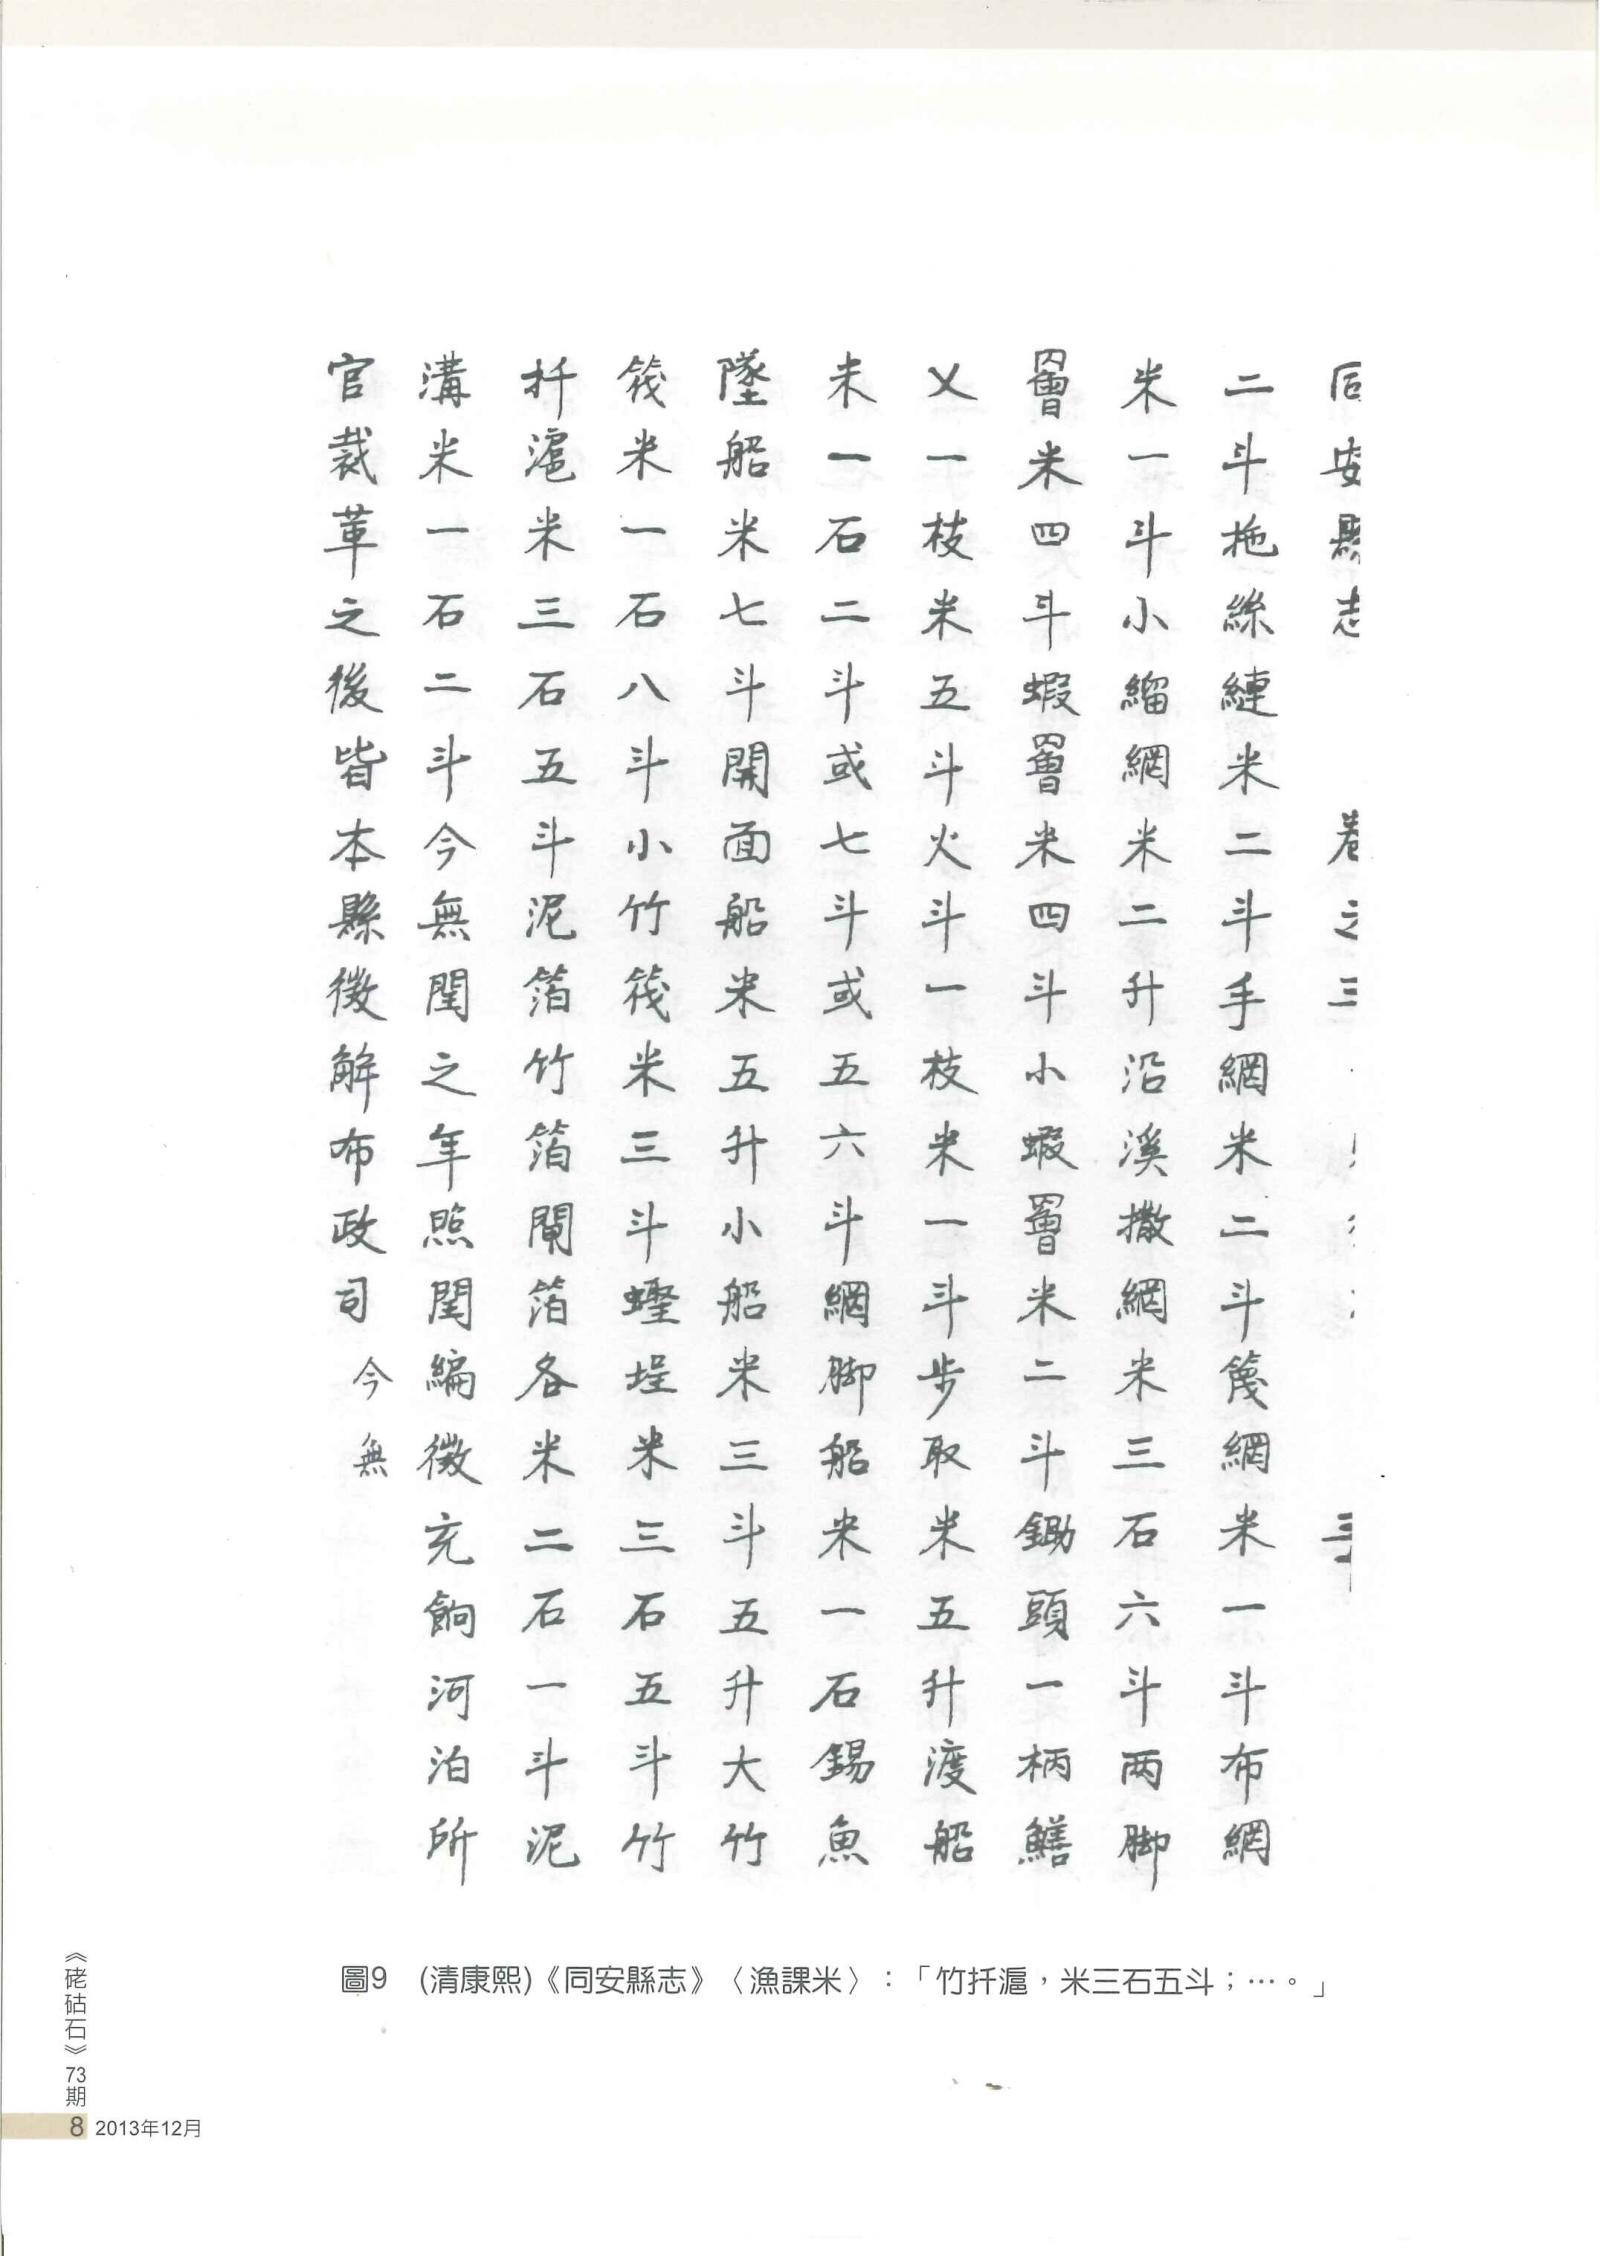 同安縣志 卷之三
二斗拖絲縺米二斗手網米二斗篾網米一斗布網
米一斗小縚網米二升沿溪撒網米三石六斗兩脚
罾米四斗蝦罾米四斗小蝦罾米二斗鋤頭一柄鱔
乂一枝米五斗火斗一枝米一斗步取米五升渡船
米一石二斗或七斗或五六斗網脚船米一石錫魚
墜船米七斗開面船米五升小船米三斗五升大竹
筏米一石八斗小竹筏米三斗蟶埕米三石五斗竹
扦滬米三石五斗泥箔竹箔閘箔各米二石一斗泥
溝米一石二斗今無閏之年照閏編徵充餉河泊所
官裁革之後皆本縣徵解布政司 今無
圖9 (清康熙)《同安縣志》〈漁課米〉:「竹扦滬,米三石五斗;…。」
《硓𥑮石》73期
8 2013年12月